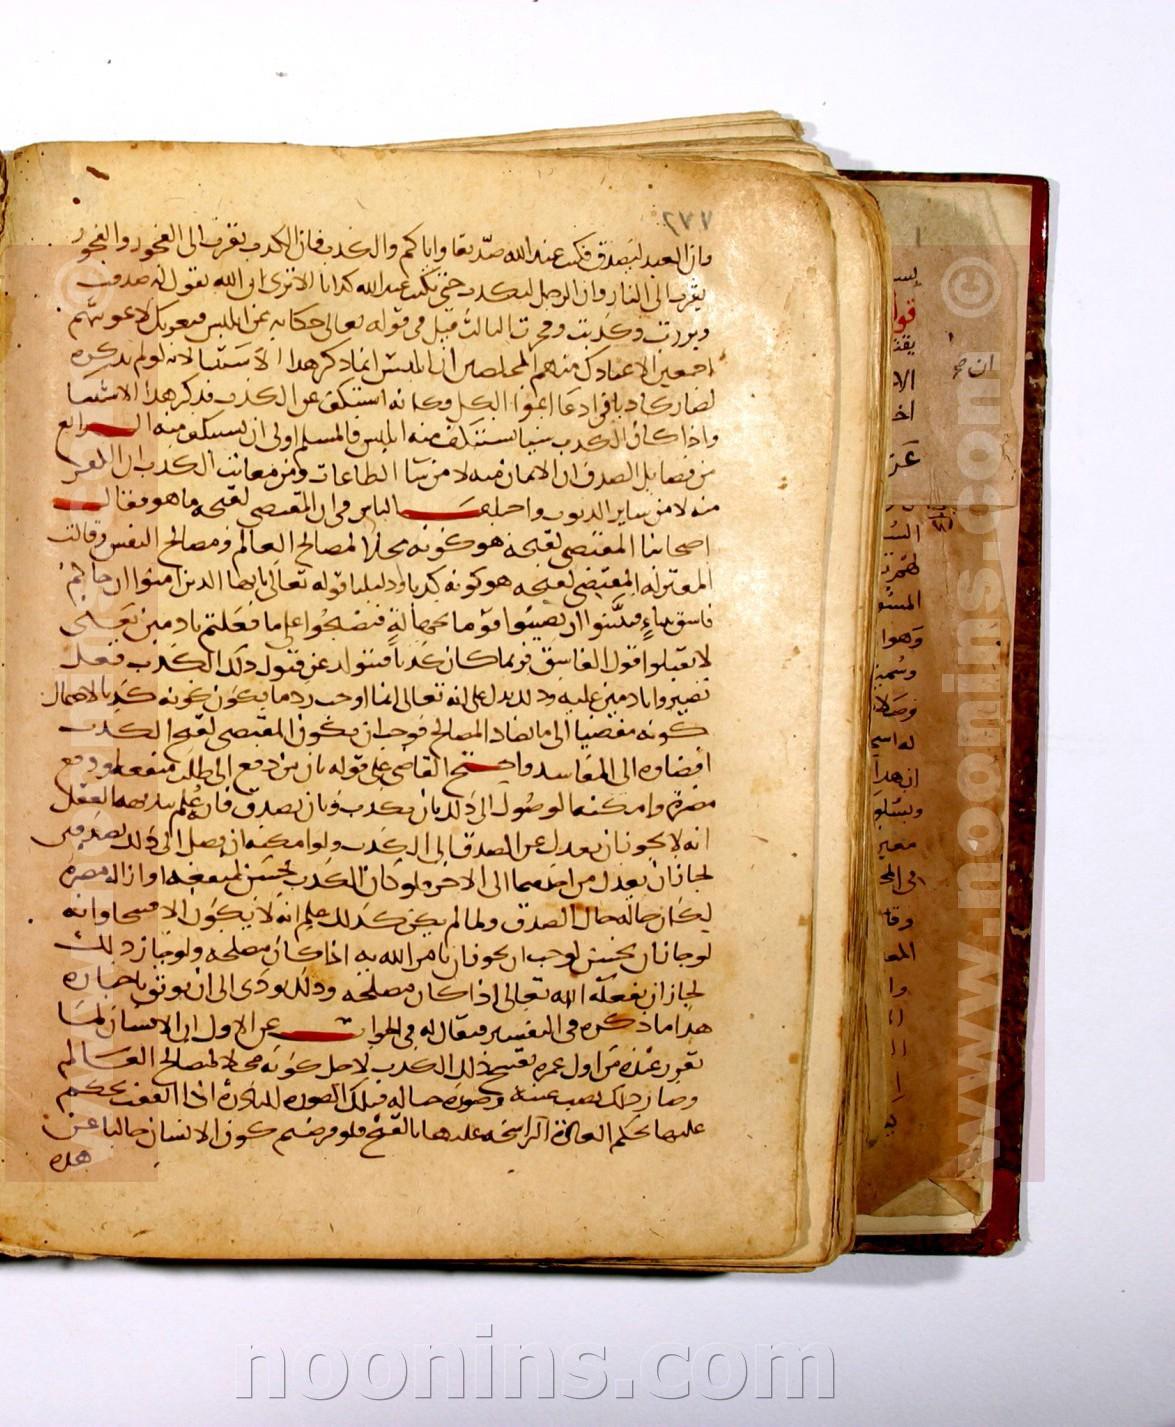 ٢٧٧
وان العبد ليصدق فيكتب عند الله صديقا واياكم والكذب فان الكذب يقرب الى الفجور والفجور
يقرب الى النار وان الرجل ليكذب حتى يكتب عند الله كذابا الا ترى انه يقول له صدقت
وبررت وكذبت وفجرت الثالث قيل في قوله تعالى حكاية عن ابليس فبعزتك لاغوينهم
اجمعين الا عبادك منهم المخلصين ان ابليس انما ذكر هذا الاستثنا لانه لو لم يذكره
لصار كاذبا في ادعا اغوا الكل وكانه استنكف عن الكذب فذكر هذا الاستثنا
واذا كان الكذب شيا يستنكف منه ابليس فالمسلم اولى ان يستنكف منه الرابع
من فضايل الصدق ان الايمان منه لا من سا الطاعات ومن معايب الكذب ان الكفر
منه لا من ساير الذنوب واختلف الناس في ان المقتضي لقبحه ما هو فقال
اصحابنا المقتضي لقبحه هو كونه مخلا لمصالح العالم ومصالح النفس وقالت
المعتزلة المقتضي لقبحه هو كونه كذبا ودليلنا قوله تعالى يايها الذين امنوا ان جاكم
فاسق بنباء فتبينوا ان تصيبوا قوما بجهالة فتصبحوا على ما فعلتم نادمين يعني
لا تقبلوا قول الفاسق فربما كان كذبا فيتولد عن قبول ذلك الكذب فعل
تصيروا نادمين عليه وذلك يدل على انه تعالى انما اوجب رد ما يكون كونه كذبا لاحتمال
كونه مفضيا الى ما يضاد المصالح فوجب ان يكون المقتضي لقبح الكذب
افضاوه الى المفاسد واحتج القاضي على قوله بان من دفع الى طلب منفعه او دفع
مضرة وامكنه الوصول الى ذلك بان يكذب وبان يصدق فان علم ببديهه العقل
انه لا يجوز ان يعدل عن الصدق الى الكذب ولو امكنه ان يصل الى ذلك بصدقين
لجاز ان يعدل من احدهما الى الاخر فلو كان الكذب يحسن لمنفعه او ازاله مضرة
لكان حاله حال الصدق ولما لم يكن كذلك علم انه لا يكون الا قبيحا وانه
لو جاز ان يحسن لوجب ان يجوز ان يامر الله به اذا كان مصلحه ولو جاز ذلك
لجاز ان يفعله الله تعالى اذا كان مصلحه وذلك يودى الى ان يوثق باخباره
هذا ما ذكره في التفسير فيقال له في الجواب عن الاول ان الانسان لما
تقرر عنده من اول عمره تقبيح ذلك الكذب لاجل كونه مخلا لمصالح العالم
وصار ذلك نصب عينه وصورة خياله فتلك الصورة النادرة اذا اتفقت يحكم
عليها بحكم العادة الراسخه عليها بالقبح فلو فرضتم كون الانسان خاليا عن
هذه
ان صح
قو
الا
اخ
وهوا
ان هذا
معين
وقا
المعا
وا
©
www.noonins.com
noonins.com